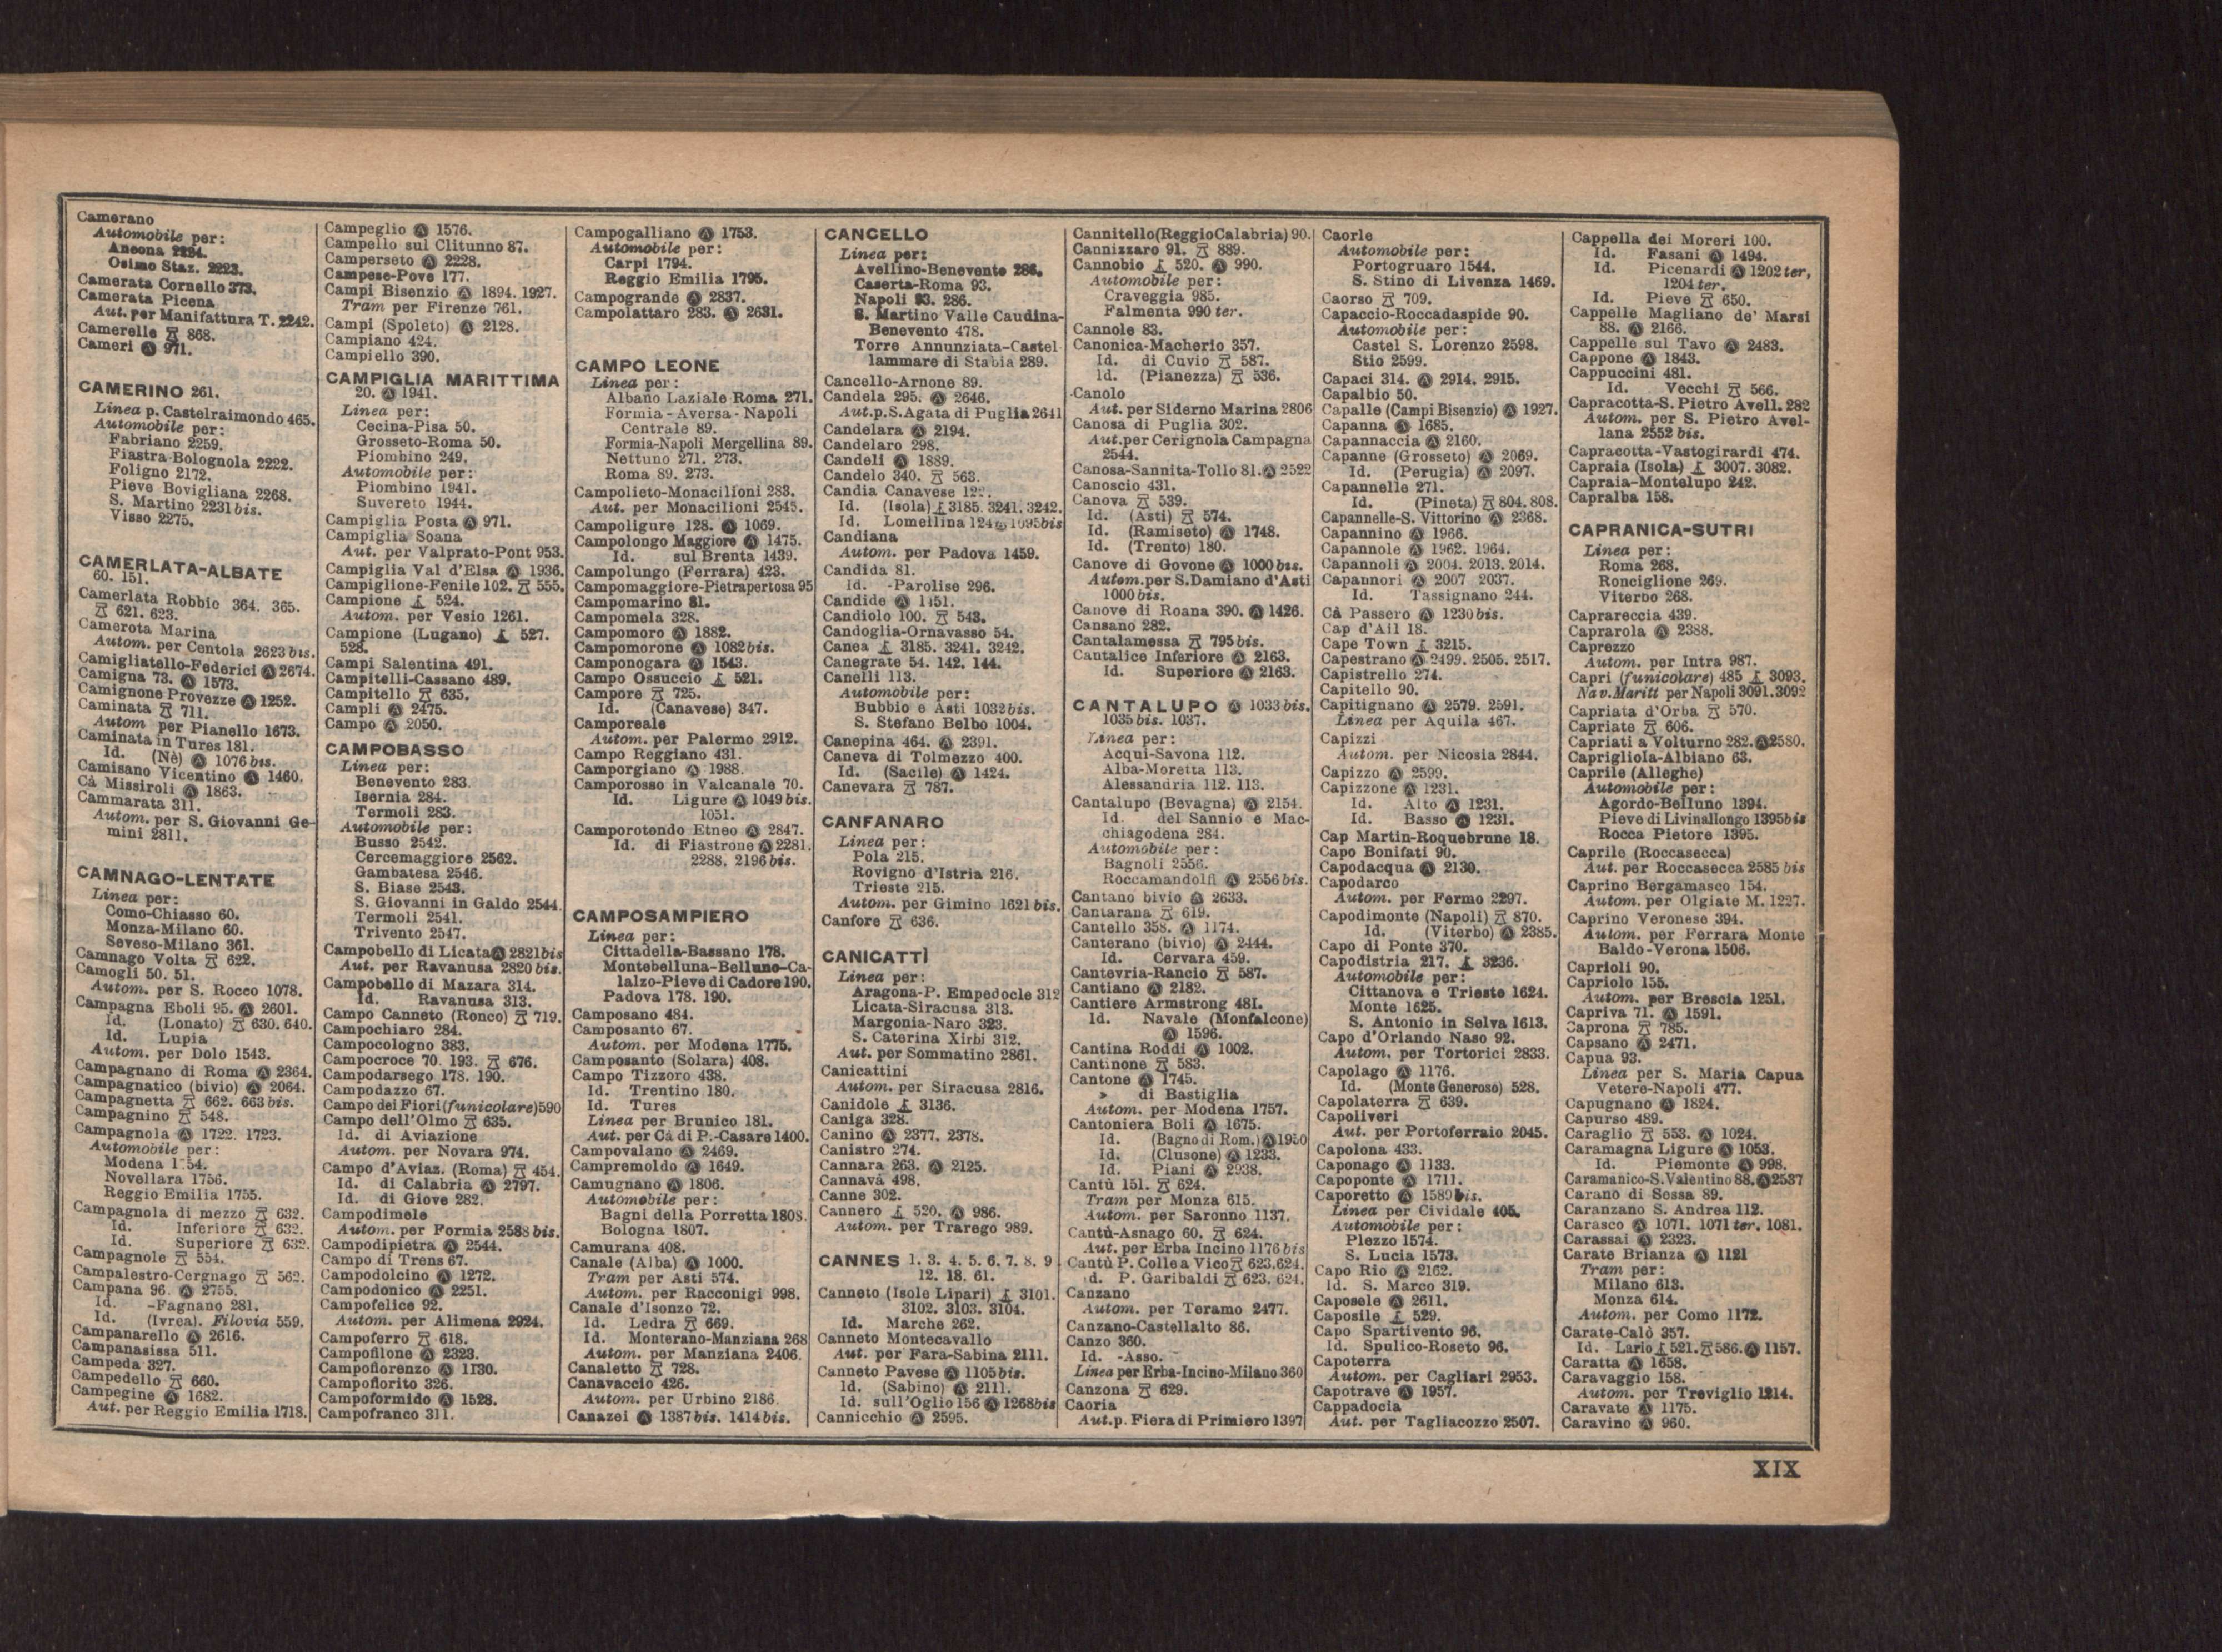 Camerano
Automobile per:
Ancona 2224.
Osimo Staz. 2223.
Camerata Cornello 373.
Camerata Picena
Aut. per Manifattura T. 2242.
Camerelle 868.
Cameri Ⓐ 971.
CAMERINO 261.
Linea p. Castelraimondo 465.
Automobile per:
Fabriano 2259.
Fiastra-Bolognola 2222.
Foligno 2172.
Pieve Bovigliana 2268.
S. Martino 2231 bis.
Visso 2275.
CAMERLATA-ALBATE
60. 151.
Camerlata Robbio 364. 365.
621. 623.
Camerota Marina
Autom. per Centola 2623 bis.
Camigliatello-Federici Ⓐ 2674.
Camigna 73. Ⓐ 1573.
Camignone Provezze Ⓐ 1252.
Caminata 711.
Autom per Pianello 1673.
Caminata in Tures 181.
Id. (Nè) Ⓐ 1076 bis.
Camisano Vicentino Ⓐ 1460.
Cà Missiroli Ⓐ 1863.
Cammarata 311.
Autom. per S. Giovanni Ge-
mini 2811.
CAMNAGO-LENTATE
Linea per:
Como-Chiasso 60.
Monza-Milano 60.
Seveso-Milano 361.
Camnago Volta 622.
Camogli 50. 51.
Autom. per S. Rocco 1078.
Campagna Eboli 95. Ⓐ 2601.
Id. (Lonato) 630. 640.
Id. Lupia
Autom. per Dolo 1543.
Campagnano di Roma Ⓐ 2364.
Campagnatico (bivio) Ⓐ 2064.
Campagnetta 662. 663 bis.
Campagnino 548.
Campagnola Ⓐ 1722. 1723.
Automobile per:
Modena 54.
Novellara 1756.
Reggio Emilia 1755.
Campagnola di mezzo 632.
Id. Inferiore 632.
Id. Superiore 632.
Campagnole 554.
Campalestro-Cergnago 562.
Campana 96. Ⓐ 2755.
Id. -Fagnano 281.
Id. (Ivrea). Filovia 559.
Campanarello Ⓐ 2616.
Campanasissa 511.
Campeda 327.
Campedello 660.
Campegine Ⓐ 1682.
Aut. per Reggio Emilia 1718.
Campeglio Ⓐ 1576.
Campello sul Clitunno 87.
Camperseto Ⓐ 2228.
Campese-Pove 177.
Campi Bisenzio Ⓐ 1894. 1927.
Tram per Firenze 761.
Campi (Spoleto) Ⓐ 2128.
Campiano 424.
Campiello 390.
CAMPIGLIA MARITTIMA
20. Ⓐ 1941.
Linea per:
Cecina-Pisa 50.
Grosseto-Roma 50.
Piombino 249.
Automobile per:
Piombino 1941.
Suvereto 1944.
Campiglia Posta Ⓐ 971.
Campiglia Soana
Aut. per Valprato-Pont 953.
Campiglia Val d'Elsa Ⓐ 1936.
Campiglione-Fenile 102. 555.
Campione 524.
Autom. per Vesio 1261.
Campione (Lugano) 527.
528.
Campi Salentina 491.
Campitelli-Cassano 489.
Campitello 635.
Campli Ⓐ 2475.
Campo Ⓐ 2050.
CAMPOBASSO
Linea per:
Benevento 283.
Isernia 284.
Termoli 283.
Automobile per:
Busso 2542.
Cercemaggiore 2562.
Gambatesa 2546.
S. Biase 2543.
S. Giovanni in Galdo 2544.
Termoli 2541.
Trivento 2547.
Campobello di Licata Ⓐ 2821 bis
Aut. per Ravanusa 2820 bis.
Campobello di Mazara 314.
Id. Ravanusa 313.
Campo Canneto (Ronco) 719.
Campochiaro 284.
Campocologno 383.
Campocroce 70. 193. 676.
Campodarsego 178. 190.
Campodazzo 67.
Campo dei Fiori (funicolare) 590
Campo dell'Olmo 635.
Id. di Aviazione
Autom. per Novara 974.
Campo d'Aviaz. (Roma) 454.
Id. di Calabria Ⓐ 2797.
Id. di Giove 282.
Campodimele
Autom. per Formia 2588 bis.
Campodipietra Ⓐ 2544.
Campo di Trens 67.
Campodolcino Ⓐ 1272.
Campodonico Ⓐ 2251.
Campofelice 92.
Autom. per Alimena 2924.
Campoferro 618.
Campofilone Ⓐ 2323.
Campoflorenzo Ⓐ 1130.
Campoflorito 326.
Campoformido Ⓐ 1528.
Campofranco 311.
Campogalliano Ⓐ 1753.
Automobile per:
Carpi 1794.
Reggio Emilia 1795.
Campogrande Ⓐ 2837.
Campolattaro 283. Ⓐ 2631.
CAMPO LEONE
Linea per:
Albano Laziale Roma 271.
Formia - Aversa - Napoli
Centrale 89.
Formia-Napoli Mergellina 89.
Nettuno 271. 273.
Roma 89. 273.
Campolieto-Monacilioni 283.
Aut. per Monacilioni 2545.
Campoligure 128. Ⓐ 1069.
Campolongo Maggiore Ⓐ 1475.
Id. sul Brenta 1439.
Campolungo (Ferrara) 423.
Campomaggiore-Pietrapertosa 95
Campomarino 81.
Campomela 328.
Campomoro Ⓐ 1882.
Campomorone Ⓐ 1082 bis.
Camponogara Ⓐ 1543.
Campo Ossuccio 521.
Campore 725.
Id. (Canavese) 347.
Camporeale
Autom. per Palermo 2912.
Campo Reggiano 431.
Camporgiano Ⓐ 1988.
Camporosso in Valcanale 70.
Id. Ligure Ⓐ 1049 bis.
1051.
Camporotondo Etneo Ⓐ 2847.
Id. di Fiastrone Ⓐ 2281.
2288. 2196 bis.
CAMPOSAMPIERO
Linea per:
Cittadella-Bassano 178.
Montebelluna-Belluno-Ca-
lalzo-Pieve di Cadore 190.
Padova 178. 190.
Camposano 484.
Camposanto 67.
Autom. per Modena 1775.
Camposanto (Solara) 408.
Campo Tizzoro 438.
Id. Trentino 180.
Id. Tures
Linea per Brunico 181.
Aut. per Cà di P.-Casare 1400.
Campovalano Ⓐ 2469.
Campremoldo Ⓐ 1649.
Camugnano Ⓐ 1806.
Automobile per:
Bagni della Porretta 1808.
Bologna 1807.
Camurana 408.
Canale (Alba) Ⓐ 1000.
Tram per Asti 574.
Autom. per Racconigi 998.
Canale d'Isonzo 72.
Id. Ledra 669.
Id. Monterano-Manziana 268
Autom. per Manziana 2406.
Canaletto 728.
Canavaccio 426.
Autom. per Urbino 2186.
Canazei Ⓐ 1387 bis. 1414 bis.
CANCELLO
Linea per:
Avellino-Benevento 286.
Caserta-Roma 93.
Napoli 93. 286.
S. Martino Valle Caudina-
Benevento 478.
Torre Annunziata-Castel
lammare di Stabia 289.
Cancello-Arnone 89.
Candela 295. Ⓐ 2646.
Aut.p.S.Agata di Puglia 2641
Candelara Ⓐ 2194.
Candelaro 298.
Candeli Ⓐ 1889.
Candelo 340. 563.
Candia Canavese 122.
Id. (Isola) 3185. 3241. 3242.
Id. Lomellina 124 Ⓐ 1095 bis
Candiana
Autom. per Padova 1459.
Candida 81.
Id. -Parolise 296.
Candide Ⓐ 1451.
Candiolo 100. 543.
Candoglia-Ornavasso 54.
Canea 3185. 3241. 3242.
Canegrate 54. 142. 144.
Canelli 113.
Automobile per:
Bubbio e Asti 1032 bis.
S. Stefano Belbo 1004.
Canepina 464. Ⓐ 2391.
Caneva di Tolmezzo 400.
Id. (Sacile) Ⓐ 1424.
Canevara 787.
CANFANARO
Linea per:
Pola 215.
Rovigno d'Istria 216.
Trieste 215.
Autom. per Gimino 1621 bis.
Canfore 636.
CANICATTÌ
Linea per:
Aragona-P. Empedocle 312
Licata-Siracusa 313.
Margonia-Naro 323.
S. Caterina Xirbi 312.
Aut. per Sommatino 2861.
Canicattini
Autom. per Siracusa 2816.
Canidole 3136.
Caniga 328.
Canino Ⓐ 2377. 2378.
Canistro 274.
Cannara 263. Ⓐ 2125.
Cannavà 498.
Canne 302.
Cannero 520. Ⓐ 986.
Autom. per Trarego 989.
CANNES 1. 3. 4. 5. 6. 7. 8. 9
12. 18. 61.
Canneto (Isole Lipari) 3101.
3102. 3103. 3104.
Id. Marche 262.
Canneto Montecavallo
Aut. per Fara-Sabina 2111.
Canneto Pavese Ⓐ 1105 bis.
Id. (Sabino) Ⓐ 2111.
Id. sull'Oglio 156 Ⓐ 1268 bis
Cannicchio Ⓐ 2595.
Cannitello (Reggio Calabria) 90.
Cannizzaro 91. 889.
Cannobio 520. Ⓐ 990.
Automobile per:
Craveggia 985.
Falmenta 990 ter.
Cannole 83.
Canonica-Macherio 357.
Id. di Cuvio 587.
Id. (Pianezza) 536.
Canolo
Aut. per Siderno Marina 2806
Canosa di Puglia 302.
Aut.per Cerignola Campagna
2544.
Canosa-Sannita-Tollo 81. Ⓐ 2522
Canoscio 431.
Canova 539.
Id. (Asti) 574.
Id. (Ramiseto) Ⓐ 1748.
Id. (Trento) 180.
Canove di Govone Ⓐ 1000 bis.
Autom.per S.Damiano d'Asti
1000 bis.
Canove di Roana 390. Ⓐ 1426.
Cansano 282.
Cantalamessa 795 bis.
Cantalice Inferiore Ⓐ 2163.
Id. Superiore Ⓐ 2163.
CANTALUPO Ⓐ 1033 bis.
1035 bis. 1037.
Linea per:
Acqui-Savona 112.
Alba-Moretta 113.
Alessandria 112. 113.
Cantalupo (Bevagna) Ⓐ 2154.
Id. del Sannio e Mac-
chiagodena 284.
Automobile per:
Bagnoli 2556.
Roccamandolfi Ⓐ 2556 bis.
Cantano bivio Ⓐ 2633.
Cantarana 619.
Cantello 358. Ⓐ 1174.
Canterano (bivio) Ⓐ 2444.
Id. Cervara 459.
Cantevria-Rancio 587.
Cantiano Ⓐ 2182.
Cantiere Armstrong 481.
Id. Navale (Monfalcone)
Ⓐ 1596.
Cantina Roddi Ⓐ 1002.
Cantinone 583.
Cantone Ⓐ 1745.
» di Bastiglia
Autom. per Modena 1757.
Cantoniera Boli Ⓐ 1675.
Id. (Bagno di Rom.) Ⓐ 1950
Id. (Clusone) Ⓐ 1233.
Id. Piani Ⓐ 2938.
Cantù 151. 624.
Tram per Monza 615.
Autom. per Saronno 1137.
Cantù-Asnago 60. 624.
Aut. per Erba Incino 1176 bis
Cantù P. Colle a Vico 623. 624.
d. P. Garibaldi 623. 624.
Canzano
Autom. per Teramo 2477.
Canzano-Castellalto 86.
Canzo 360.
Id. -Asso.
Linea per Erba-Incino-Milano 360
Canzona 629.
Caoria
Aut.p. Fiera di Primiero 1397
Caorle
Automobile per:
Portogruaro 1544.
S. Stino di Livenza 1469.
Caorso 709.
Capaccio-Roccadaspide 90.
Automobile per:
Castel S. Lorenzo 2598.
Stio 2599.
Capaci 314. Ⓐ 2914. 2915.
Capalbio 50.
Capalle (Campi Bisenzio) Ⓐ 1927.
Capanna Ⓐ 1685.
Capannaccia Ⓐ 2160.
Capanne (Grosseto) Ⓐ 2069.
Id. (Perugia) Ⓐ 2097.
Capannelle 271.
Id. (Pineta) 804. 808.
Capannelle-S. Vittorino Ⓐ 2368.
Capannino Ⓐ 1966.
Capannole Ⓐ 1962. 1964.
Capannoli Ⓐ 2004. 2013. 2014.
Capannori Ⓐ 2007 2037.
Id. Tassignano 244.
Cà Passero Ⓐ 1230 bis.
Cap d'Ail 18.
Cape Town 3215.
Capestrano Ⓐ 2499. 2505. 2517.
Capistrello 274.
Capitello 90.
Capitignano Ⓐ 2579. 2591.
Linea per Aquila 467.
Capizzi
Autom. per Nicosia 2844.
Capizzo Ⓐ 2599.
Capizzone Ⓐ 1231.
Id. Alto Ⓐ 1231.
Id. Basso Ⓐ 1231.
Cap Martin-Roquebrune 18.
Capo Bonifati 90.
Capodacqua Ⓐ 2130.
Capodarco
Autom. per Fermo 2297.
Capodimonte (Napoli) 870.
Id. (Viterbo) Ⓐ 2385.
Capo di Ponte 370.
Capodistria 217. 3236.
Automobile per:
Cittanova e Trieste 1624.
Monte 1625.
S. Antonio in Selva 1613.
Capo d'Orlando Naso 92.
Autom. per Tortorici 2833.
Capolago Ⓐ 1176.
Id. (Monte Generoso) 528.
Capolaterra 639.
Capoliveri
Aut. per Portoferraio 2045.
Capolona 433.
Caponago Ⓐ 1133.
Capoponte Ⓐ 1711.
Caporetto Ⓐ 1589 bis.
Linea per Cividale 405.
Automobile per:
Plezzo 1574.
S. Lucia 1573.
Capo Rio Ⓐ 2162.
Id. S. Marco 319.
Caposele Ⓐ 2611.
Caposile 529.
Capo Spartivento 96.
Id. Spulico-Roseto 96.
Capoterra
Autom. per Cagliari 2953.
Capotrave Ⓐ 1957.
Cappadocia
Aut. per Tagliacozzo 2507.
Cappella dei Moreri 100.
Id. Fasani Ⓐ 1494.
Id. Picenardi Ⓐ 1202 ter,
1204 ter.
Id. Pieve 650.
Cappelle Magliano de' Marsi
88. Ⓐ 2166.
Cappelle sul Tavo Ⓐ 2483.
Cappone Ⓐ 1843.
Cappuccini 481.
Id. Vecchi 566.
Capracotta-S. Pietro Avell. 282
Autom. per S. Pietro Avel-
lana 2552 bis.
Capracotta-Vastogirardi 474.
Capraia (Isola) 3007. 3082.
Capraia-Montelupo 242.
Capralba 158.
CAPRANICA-SUTRI
Linea per:
Roma 268.
Ronciglione 269.
Viterbo 268.
Caprareccia 439.
Caprarola Ⓐ 2388.
Caprezzo
Autom. per Intra 987.
Capri (funicolare) 485 3093.
Nav. Maritt per Napoli 3091. 3092
Capriata d'Orba 570.
Capriate 606.
Capriati a Volturno 282. Ⓐ 2580.
Caprigliola-Albiano 63.
Caprile (Alleghe)
Automobile per:
Agordo-Belluno 1394.
Pieve di Livinallongo 1395 bis
Rocca Pietore 1395.
Caprile (Roccasecca)
Aut. per Roccasecca 2585 bis
Caprino Bergamasco 154.
Autom. per Olgiate M. 1227.
Caprino Veronese 394.
Autom. per Ferrara Monte
Baldo-Verona 1506.
Caprioli 90.
Capriolo 155.
Autom. per Brescia 1251.
Capriva 71. Ⓐ 1591.
Caprona 785.
Capsano Ⓐ 2471.
Capua 93.
Linea per S. Maria Capua
Vetere-Napoli 477.
Capugnano Ⓐ 1824.
Capurso 489.
Caraglio 553. Ⓐ 1024.
Caramagna Ligure Ⓐ 1053.
Id. Piemonte Ⓐ 998.
Caramanico-S. Valentino 88. Ⓐ 2537
Carano di Sessa 89.
Caranzano S. Andrea 112.
Carasco Ⓐ 1071. 1071 ter. 1081.
Carassai Ⓐ 2323.
Carate Brianza Ⓐ 1121
Tram per:
Milano 613.
Monza 614.
Autom. per Como 1172.
Carate-Calò 357.
Id. Lario 521. 586. Ⓐ 1157.
Caratta Ⓐ 1658.
Caravaggio 158.
Autom. per Treviglio 1214.
Caravate Ⓐ 1175.
Caravino Ⓐ 960.
XIX